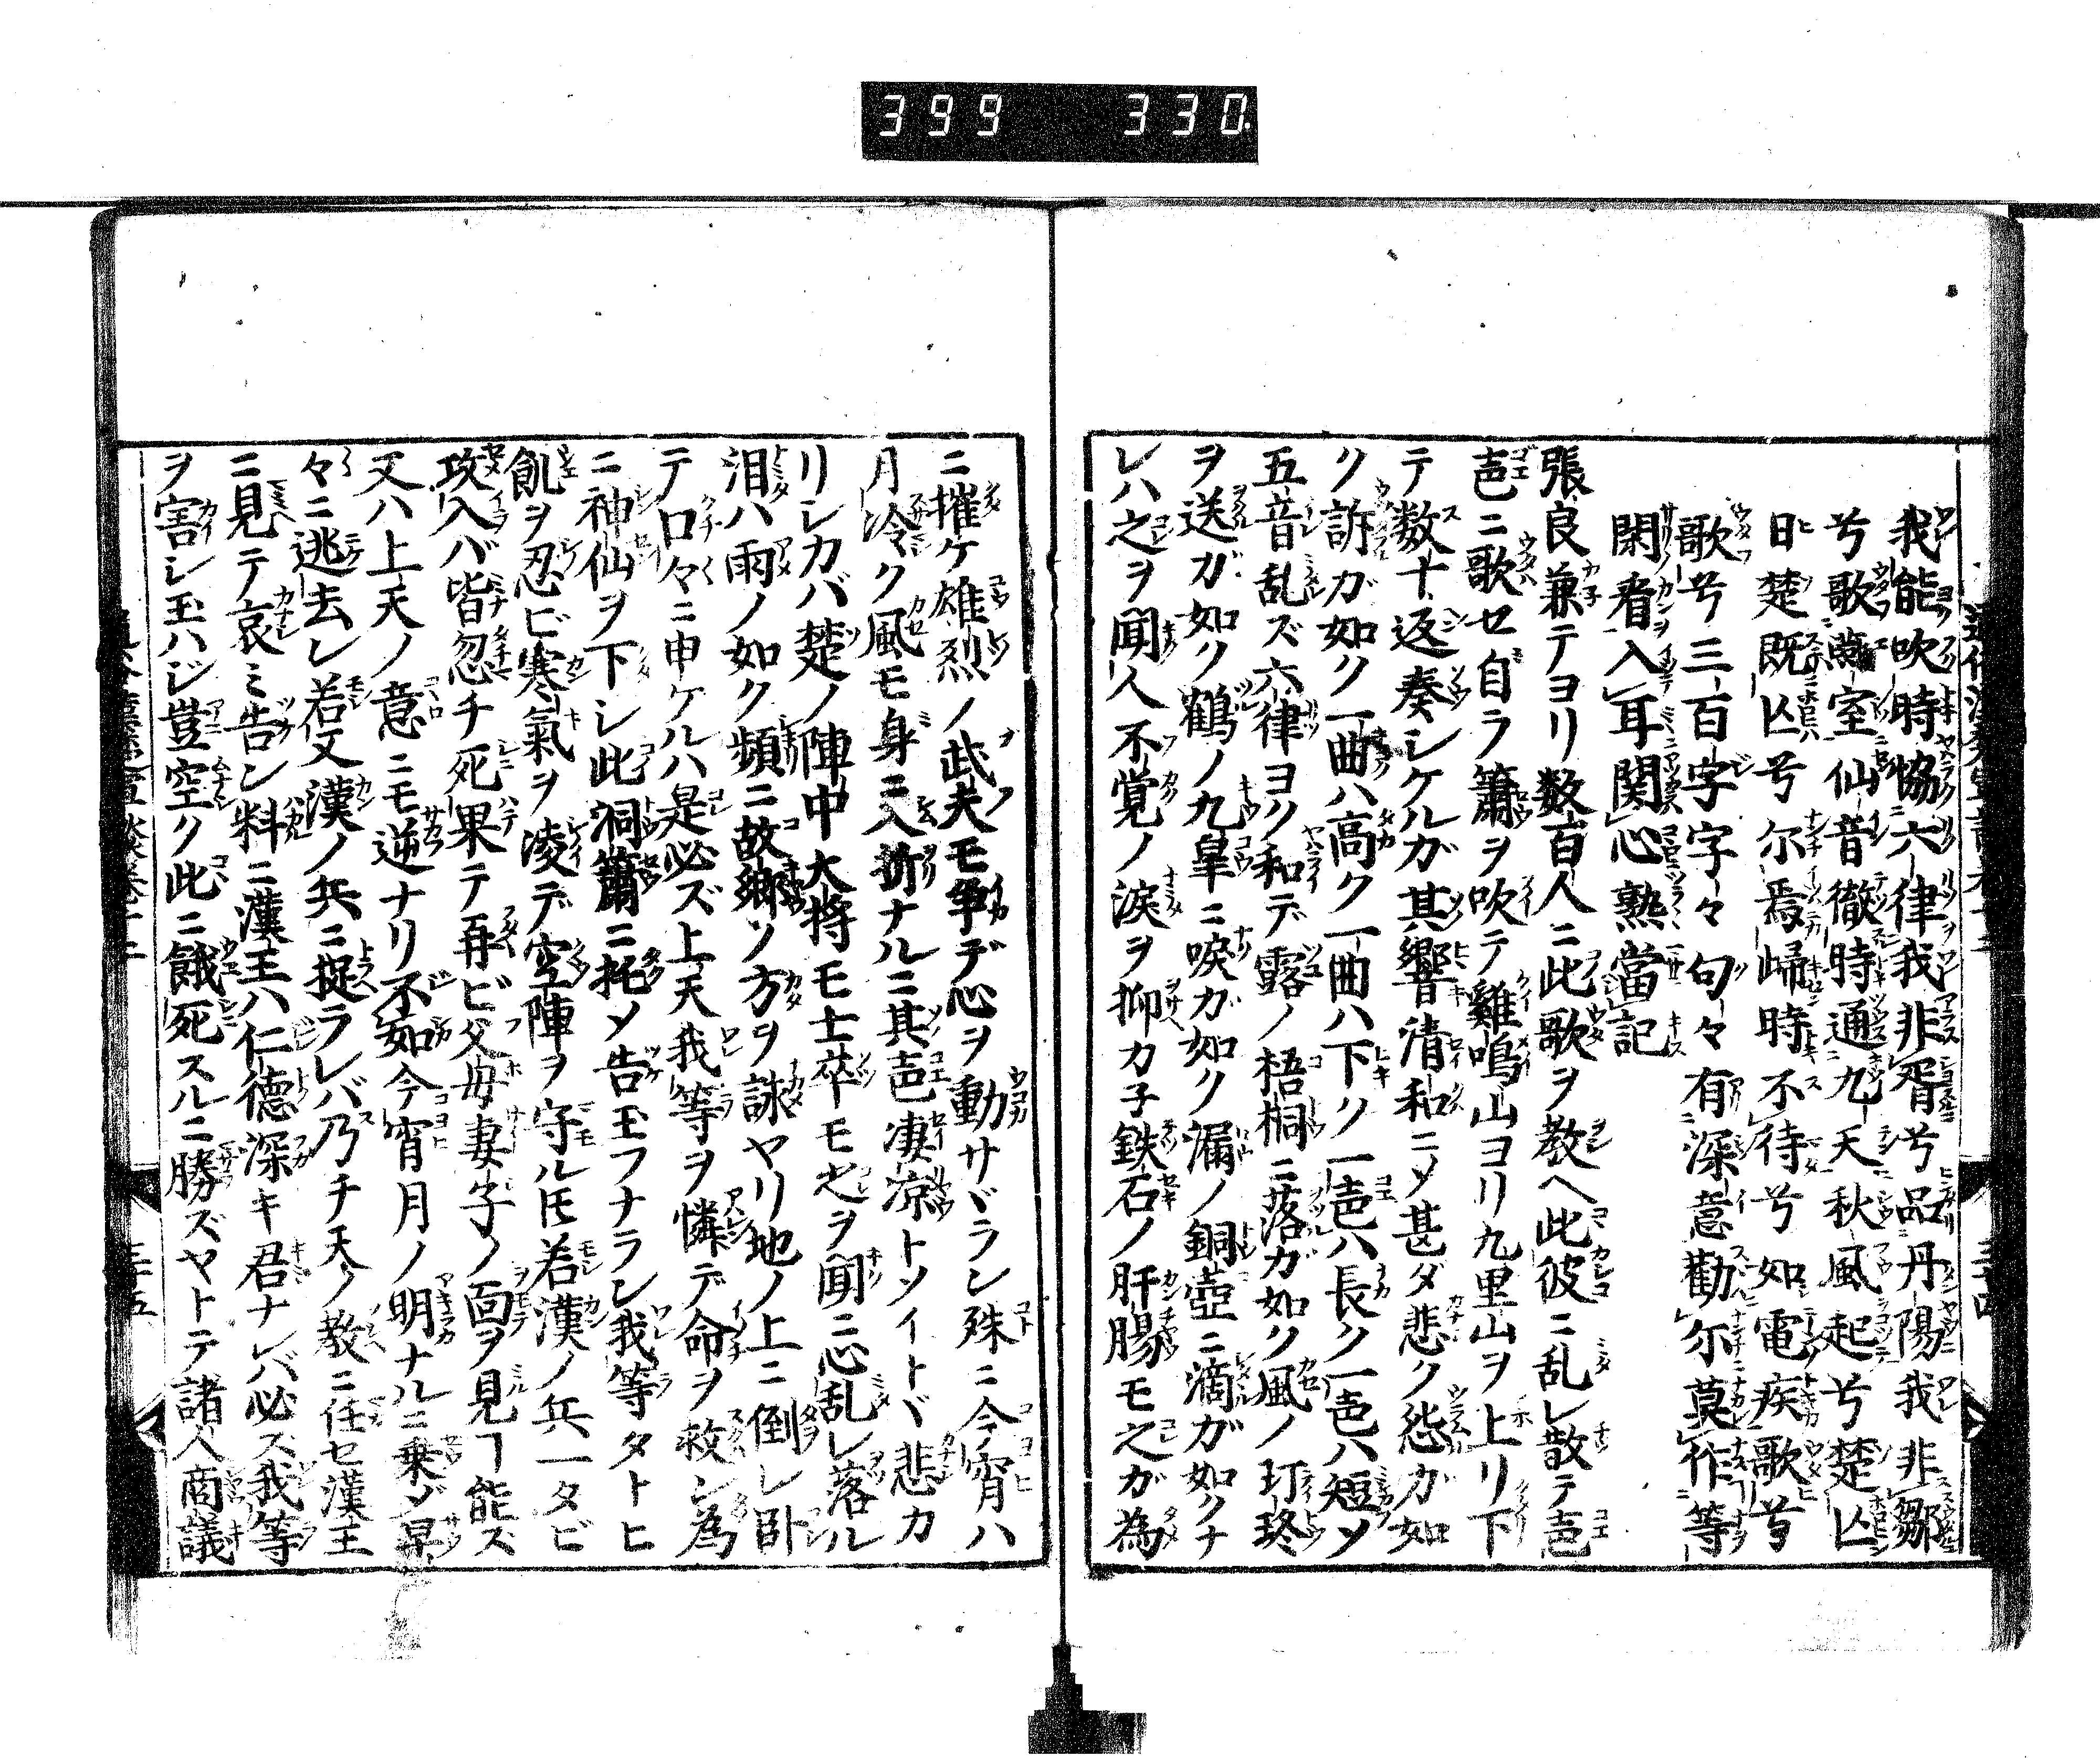 399 330.
我能吹時協六律我非胥兮品丹陽我非鄒
兮歌蘭室仙音徹時通九天秋風起兮楚亡
日楚既亡兮尓焉帰時不待兮如電疾歌兮
歌兮三百字字々句々有深意勸尓莫作等
閑看入耳関心熟當記
張良兼テヨリ数百人ニ此歌ヲ教ヘ此彼ニ乱レ散テ声
声ニ歌セ自ラ簫ヲ吹テ雞鳴山ヨリ九里山ヲ上リ下
テ数十返奏シケルガ其響清和ニメ甚ダ悲ク怨ガ如
ク訴ガ如ク一曲ハ高ク一曲ハ下ク一声ハ長ク一声ハ短ソ
五音乱ズ六律ヨク和デ露ノ梧桐ニ落ガ如ク風ノ玎珍
ヲ送ガ如ク鶴ノ九皐ニ唳ガ如ク漏ノ銅壺ニ滴ガ如クナ
レハ之ヲ聞人不覚ノ涙ヲ抑カ子鉄石ノ肝腸モ之ガ為
ニ摧ケ雄烈ノ武夫モ争デ心ヲ動サヾラン殊ニ今宵ハ
月冷ク風モ身ニ入折ナルニ其声凄凉トソイトヾ悲カ
リシカバ楚ノ陣中大将モ士卒モ之ヲ聞ニ心乱レ落ル
泪ハ雨ノ如ク頻ニ故郷ソ方ヲ詠ヤリ地ノ上ニ倒レ卧
テ口々ニ申ケルハ是必ズ上天我等ヲ憐デ命ヲ救ン為
ニ神仙ヲ下シ此洞簫ニ托メ告玉フナラン我等タトヒ
飢ヲ忍ビ寒氣ヲ凌デ空陣ヲ守ル𪜈若漢ノ兵一タビ
攻入バ皆忽チ死果テ再ビ父母妻子ノ面ヲ見ヿ能ズ
又ハ上天ノ意ニモ逆ナリ不如今宵月ノ明ナルニ乗ゾ早
々ニ逃去レ若又漢ノ兵ニ捉ラレバ乃チ天ノ教ニ任セ漢王
ニ見テ哀ミ告ン料ニ漢王ハ仁德深キ君ナレバ必ス我等
ヲ害シ玉ハジ豈空ク此ニ餓死スルニ勝ズヤトテ諸人商議